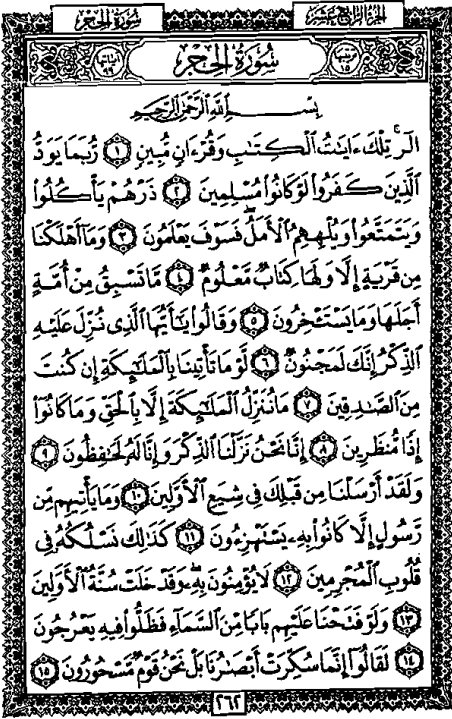 الجزء الرابع عشر
سورة الحجر
سورة الحجر
ترتيبها ١٥
آياتها ٩٩
بِسْمِ اللَّهِ الرَّحْمَٰنِ الرَّحِيمِ
الٓر ۚ تِلْكَ ءَايَٰتُ الْكِتَٰبِ وَقُرْءَانٍ مُّبِينٍ ١ رُّبَمَا يَوَدُّ
الَّذِينَ كَفَرُوا لَوْ كَانُوا مُسْلِمِينَ ٢ ذَرْهُمْ يَأْكُلُوا
وَيَتَمَتَّعُوا وَيُلْهِهِمُ الْأَمَلُ ۖ فَسَوْفَ يَعْلَمُونَ ٣ وَمَا أَهْلَكْنَا
مِن قَرْيَةٍ إِلَّا وَلَهَا كِتَابٌ مَّعْلُومٌ ٤ مَّا تَسْبِقُ مِنْ أُمَّةٍ
أَجَلَهَا وَمَا يَسْتَـْٔخِرُونَ ٥ وَقَالُوا يَٰٓأَيُّهَا الَّذِي نُزِّلَ عَلَيْهِ
الذِّكْرُ إِنَّكَ لَمَجْنُونٌ ٦ لَّوْ مَا تَأْتِينَا بِالْمَلَٰٓئِكَةِ إِن كُنتَ
مِنَ الصَّٰدِقِينَ ٧ مَا نُنَزِّلُ الْمَلَٰٓئِكَةَ إِلَّا بِالْحَقِّ وَمَا كَانُوا
إِذًا مُّنظَرِينَ ٨ إِنَّا نَحْنُ نَزَّلْنَا الذِّكْرَ وَإِنَّا لَهُ لَحَٰفِظُونَ ٩
وَلَقَدْ أَرْسَلْنَا مِن قَبْلِكَ فِي شِيَعِ الْأَوَّلِينَ ١٠ وَمَا يَأْتِيهِم مِّن
رَّسُولٍ إِلَّا كَانُوا بِهِ يَسْتَهْزِءُونَ ١١ كَذَٰلِكَ نَسْلُكُهُ فِي
قُلُوبِ الْمُجْرِمِينَ ١٢ لَا يُؤْمِنُونَ بِهِ ۖ وَقَدْ خَلَتْ سُنَّةُ الْأَوَّلِينَ
١٣ وَلَوْ فَتَحْنَا عَلَيْهِم بَابًا مِّنَ السَّمَاءِ فَظَلُّوا فِيهِ يَعْرُجُونَ
١٤ لَقَالُوا إِنَّمَا سُكِّرَتْ أَبْصَٰرُنَا بَلْ نَحْنُ قَوْمٌ مَّسْحُورُونَ ١٥
٢٦٢